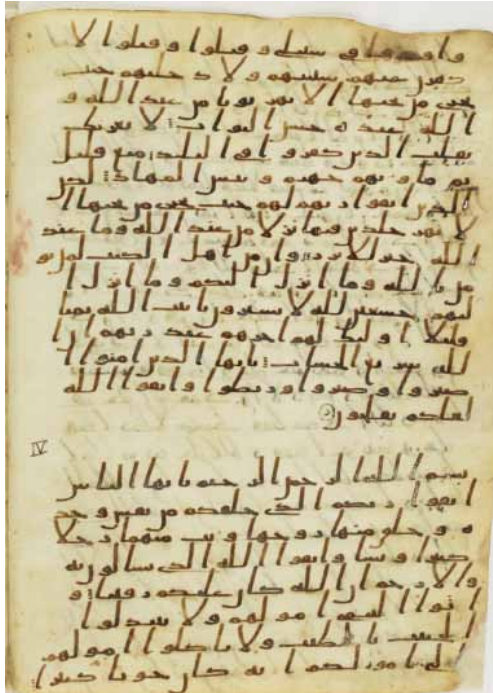 واودوا في سبيلي وقتلوا وقتلوا لا
كفرن عنهم سيتهم ولا دخلنهم جنت
تجري من تحتها الانهر ثوبا من عند الله و
الله عنده حسن الثواب لا يغرنك
تقلب الذين كفروا في البلد متع قليل
ثم ماويهم جهنم وبيس المهاد لكن
الذين اتقوا ربهم لهم جنت تجري من تحتها ا
لانهر خلدين فيها نزلا من عند الله وما عند
الله خير للابرر وان من اهل الكتب لمن يو
من بالله وما انزل اليكم وما انزل ا
ليهم خشعين لله لا يشترون بايت الله ثمنا
قليلا اوليك لهم اجرهم عند ربهم ان ا
لله سريع الحساب يايها الذين امنوا ا
صبروا وصبروا وربطوا واتقوا الله
لعلكم تفلحون
IV
بسم الله الرحمن الرحيم يايها الناس
اتقوا ربكم الذي خلقكم من نفس وحد
ه وخلق منها زوجها وبث منهما رجلا
كثيرا ونسا واتقوا الله الذي تسالون به
والارحم ان الله كان عليكم رقيبا و
اتوا اليتمى امولهم ولا تبدلوا
الخبيث بالطيب ولا تاكلوا امولهم
الى امولكم انه كان حوبا كبيرا